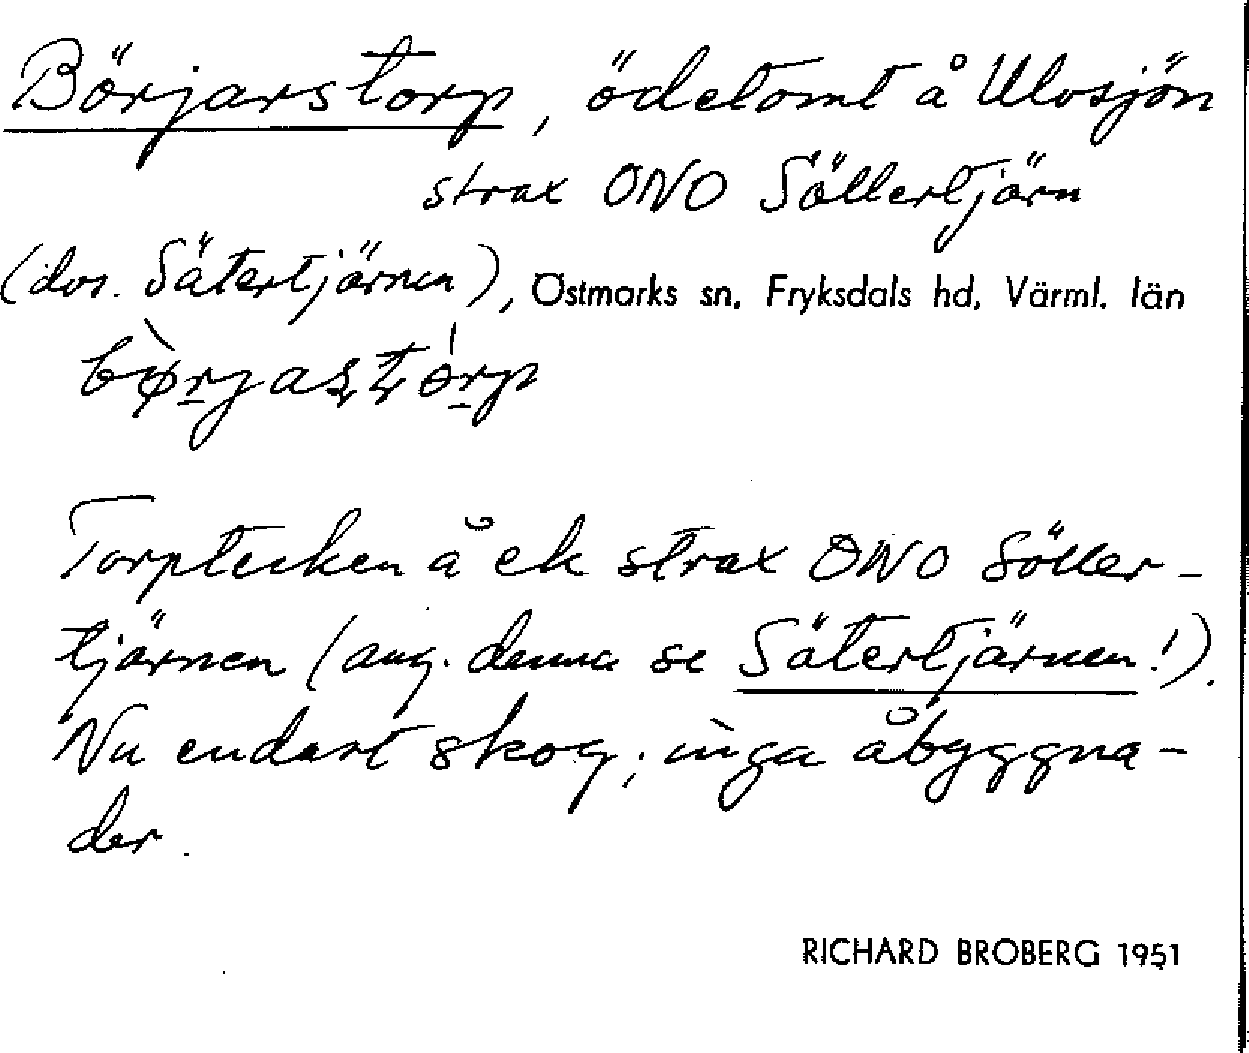 Börjarstorp, ödetomt å Ulvsjön
strax ONO Söllertjärn
(dvs. Sätertjärnen), Östmarks sn, Fryksdals hd, Värml. län
bø̀rjastórp
Torptecken å ek strax ONO Söller-
tjärnen (ang. denna se Sätertjärnen!).
Nu endast skog; inga åbyggna-
der.
RICHARD BROBERG 1951